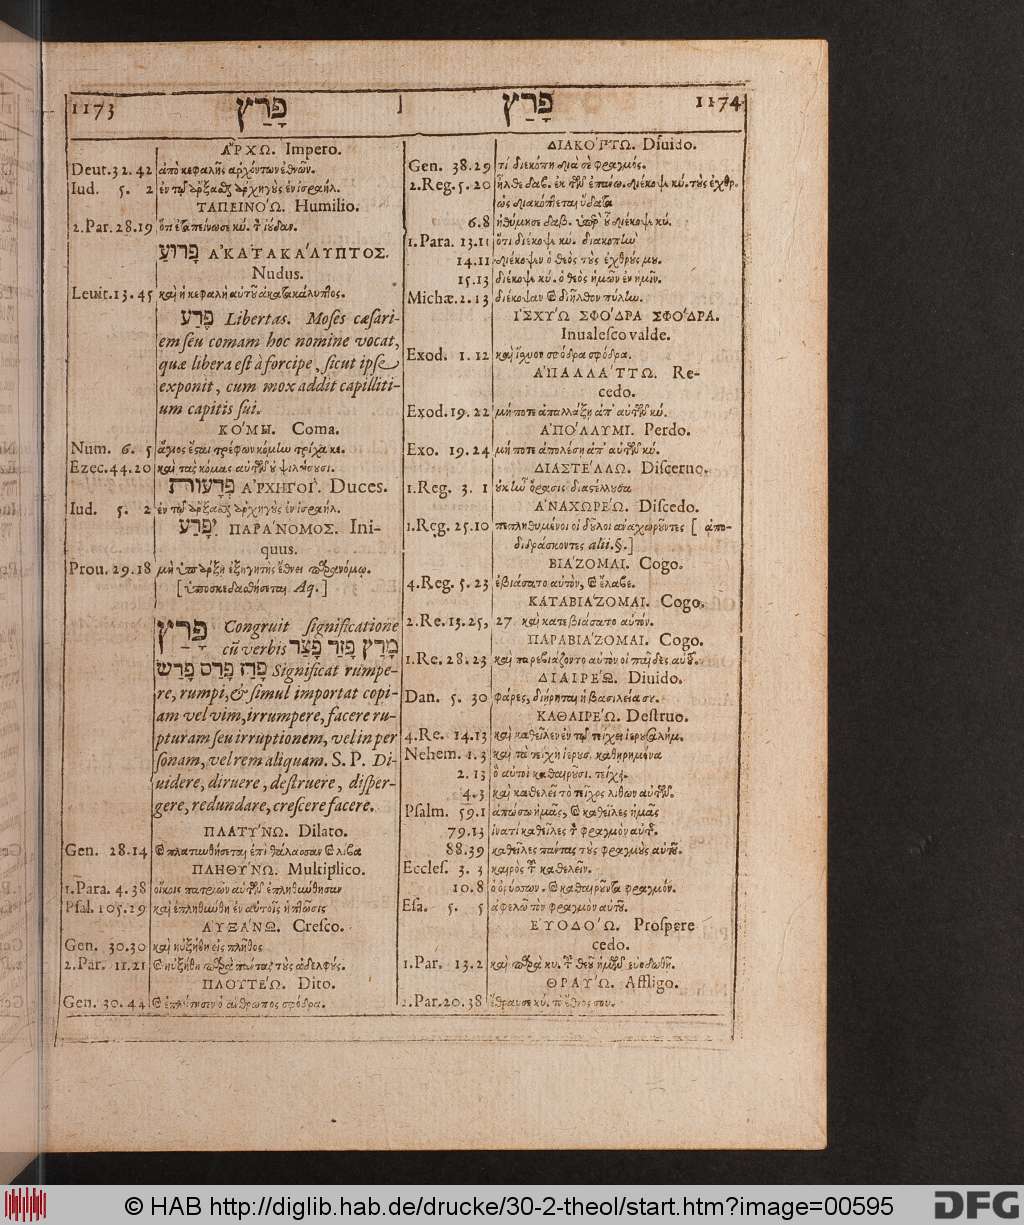 1173 פָּרַץ
ἌΡΧΩ. Impero.
Deut. 32. 42 ἀπὸ κεφαλῆς ἀρχόντων ἐθνῶν.
Iud. 5. 2 ἐν τῷ ἄρξασθαι ἀρχηγοὺς ἐν ἰσραήλ.
ΤΑΠΕΙΝΌΩ. Humilio.
2. Par. 28. 19 ὅτι ἐταπείνωσε κύ. τ̀ ἰούδαν.
פָּרוּעַ ἈΚΑΤΑΚΆΛΥΠΤΟΣ.
Nudus.
Leuit. 13. 45 καὶ ἡ κεφαλὴ αὐτοῦ ἀκατακάλυπτος.
פֶּרַע Libertas. Moses cæsari-
em seu comam hoc nomine vocat,
quæ libera est à forcipe, sicut ipse
exponit, cum mox addit capilliti-
um capitis sui.
ΚΌΜΗ. Coma.
Num. 6. 5 ἅγιος ἔσται τρέφων κόμην τρίχα κε.
Ezec. 44. 20 καὶ τὰς κόμας αὐτῶν οὐ ψιλώσουσι.
פְּרָעוֹת ἈΡΧΗΓΟΊ. Duces.
Iud. 5. 2 ἐν τῷ ἄρξασθαι ἀρχηγοὺς ἐν ἰσραήλ.
יִפָּרַע ΠΑΡΆΝΟΜΟΣ. Ini-
quus.
Prou. 29. 18 μὴ ὑπάρξῃ ἐξηγητὴς ἔθνει παρανόμῳ.
[ὑποσκεδασθήσεται Aq.]
פָּרַץ Congruit significatione
cū verbis מָרַץ פָּזַר פָּצַר
פָּרַז פָּרַס פָּרַשׂ Significat rumpe-
re, rumpi, & simul importat copi-
am vel vim, irrumpere, facere ru-
pturam seu irruptionem, vel in per
sonam, vel rem aliquam. S. P. Di-
uidere, diruere, destruere, disper-
gere, redundare, crescere facere.
ΠΛΑΤΎΝΩ. Dilato.
Gen. 28. 14 ϗ πλατυνθήσεται ἐπὶ θάλασσαν ϗ λίβα
ΠΛΗΘΎΝΩ. Multiplico.
1. Para. 4. 38 οἴκοις πατριῶν αὐτῶν ἐπληθύνθησαν
Psal. 105. 29 καὶ ἐπληθύνθη ἐν αὐτοῖς ἡ πτῶσις
ΑΥ̓ΞΆΝΩ. Cresco.
Gen. 30. 30 καὶ ηὐξήθη εἰς πλῆθος
2. Par. 11. 21 ϗ ηὐξήθη παρὰ πάντας τοὺς ἀδελφούς.
ΠΛΟΥΤΈΩ. Dito.
Gen. 30. 44 ϗ ἐπλούτησεν ὁ ἄνθρωπος σφόδρα.
פָּרַץ 1174
ΔΙΑΚΌΠΤΩ. Diuido.
Gen. 38. 29 τί διεκόπη διὰ σὲ φραγμός.
2. Reg. 5. 20 ἦλθε δαβ. ἐκ τῶν ἐπάνω. διέκοψε κύ. τοὺς ἐχθρ.
ὡς διακόπτεται ὕδατα
6. 8 ἠθύμησε δαβ. ὑπὲρ οὗ διέκοψε κύ.
1. Para. 13. 11 ὅτι διέκοψε κύ. διακοπὴν
14. 11 διέκοψεν ὁ θεὸς τοὺς ἐχθρούς μου.
15. 13 διέκοψε κύ. ὁ θεὸς ἡμῶν ἐν ἡμῖν.
Michæ. 2. 13 διέκοψαν ϗ διῆλθον πύλην.
ἸΣΧΎΩ ΣΦΌΔΡΑ ΣΦΌΔΡΑ.
Inualesco valde.
Exod. 1. 12 καὶ ἴσχυον σφόδρα σφόδρα.
ἈΠΑΛΛΆΤΤΩ. Re-
cedo.
Exod. 19. 22 μή ποτε ἀπαλλάξῃ ἀπ' αὐτῶν κύ.
ἈΠΌΛΛΥΜΙ. Perdo.
Exo. 19. 24 μή ποτε ἀπολέσῃ ἀπ' αὐτῶν κύ.
ΔΙΑΣΤΈΛΛΩ. Discerno.
1. Reg. 3. 1 οὐκ ἦν ὅρασις διαστέλλουσα
ἈΝΑΧΩΡΈΩ. Discedo.
1. Reg. 25. 10 πεπληθυμένοι οἱ δοῦλοι ἀναχωροῦντες [ἀπο-
διδράσκοντες alii. §.]
ΒΙΆΖΟΜΑΙ. Cogo.
4. Reg. 5. 23 ἐβιάσατο αὐτόν, ϗ ἔλαβε.
ΚΑΤΑΒΙΆΖΟΜΑΙ. Cogo.
2. Re. 13. 25, 27 καὶ κατεβιάσατο αὐτόν.
ΠΑΡΑΒΙΆΖΟΜΑΙ. Cogo.
1. Re. 28. 23 καὶ παρεβιάζοντο αὐτὸν οἱ παῖδες αὐτοῦ.
ΔΙΑΙΡΈΩ. Diuido.
Dan. 5. 30 φάρες, διῄρηται ἡ βασιλεία σου.
ΚΑΘΑΙΡΈΩ. Destruo.
4. Re. 14. 13 καὶ καθεῖλεν ἐν τῷ τείχει ἱερουσαλήμ.
Nehem. 1. 3 καὶ τὰ τείχη ἱερουσ. καθῃρημένα
2. 13 ὃ αὐτοὶ καθαιροῦσι. τείχη.
4. 3 καὶ καθελεῖ τὸ τεῖχος λίθων αὐτῶν.
Psalm. 59. 1 ἀπώσω ἡμᾶς, ϗ καθεῖλες ἡμᾶς
79. 13 ἱνατί καθεῖλες τ̀ φραγμὸν αὐτ.
88. 39 καθεῖλες πάντας τοὺς φραγμοὺς αὐτοῦ.
Eccles. 3. 3 καιρὸς τοῦ καθελεῖν.
10. 8 ὁ ὀρύσσων. ϗ καθαιροῦντα φραγμόν.
Esa. 5. 5 ἀφελῶ τὸν φραγμὸν αὐτοῦ.
ΕΥ̓ΟΔΌΩ. Prospere
cedo.
1. Par. 13. 2 καὶ παρὰ κυ. τοῦ θεοῦ ἡμῶν εὐοδωθῇ.
ΘΡΑΎΩ. Affligo.
2. Par. 20. 38 ἔθραυσε κύ. τὸ ἔθνος σου.
© HAB http://diglib.hab.de/drucke/30-2-theol/start.htm?image=00595
DFG